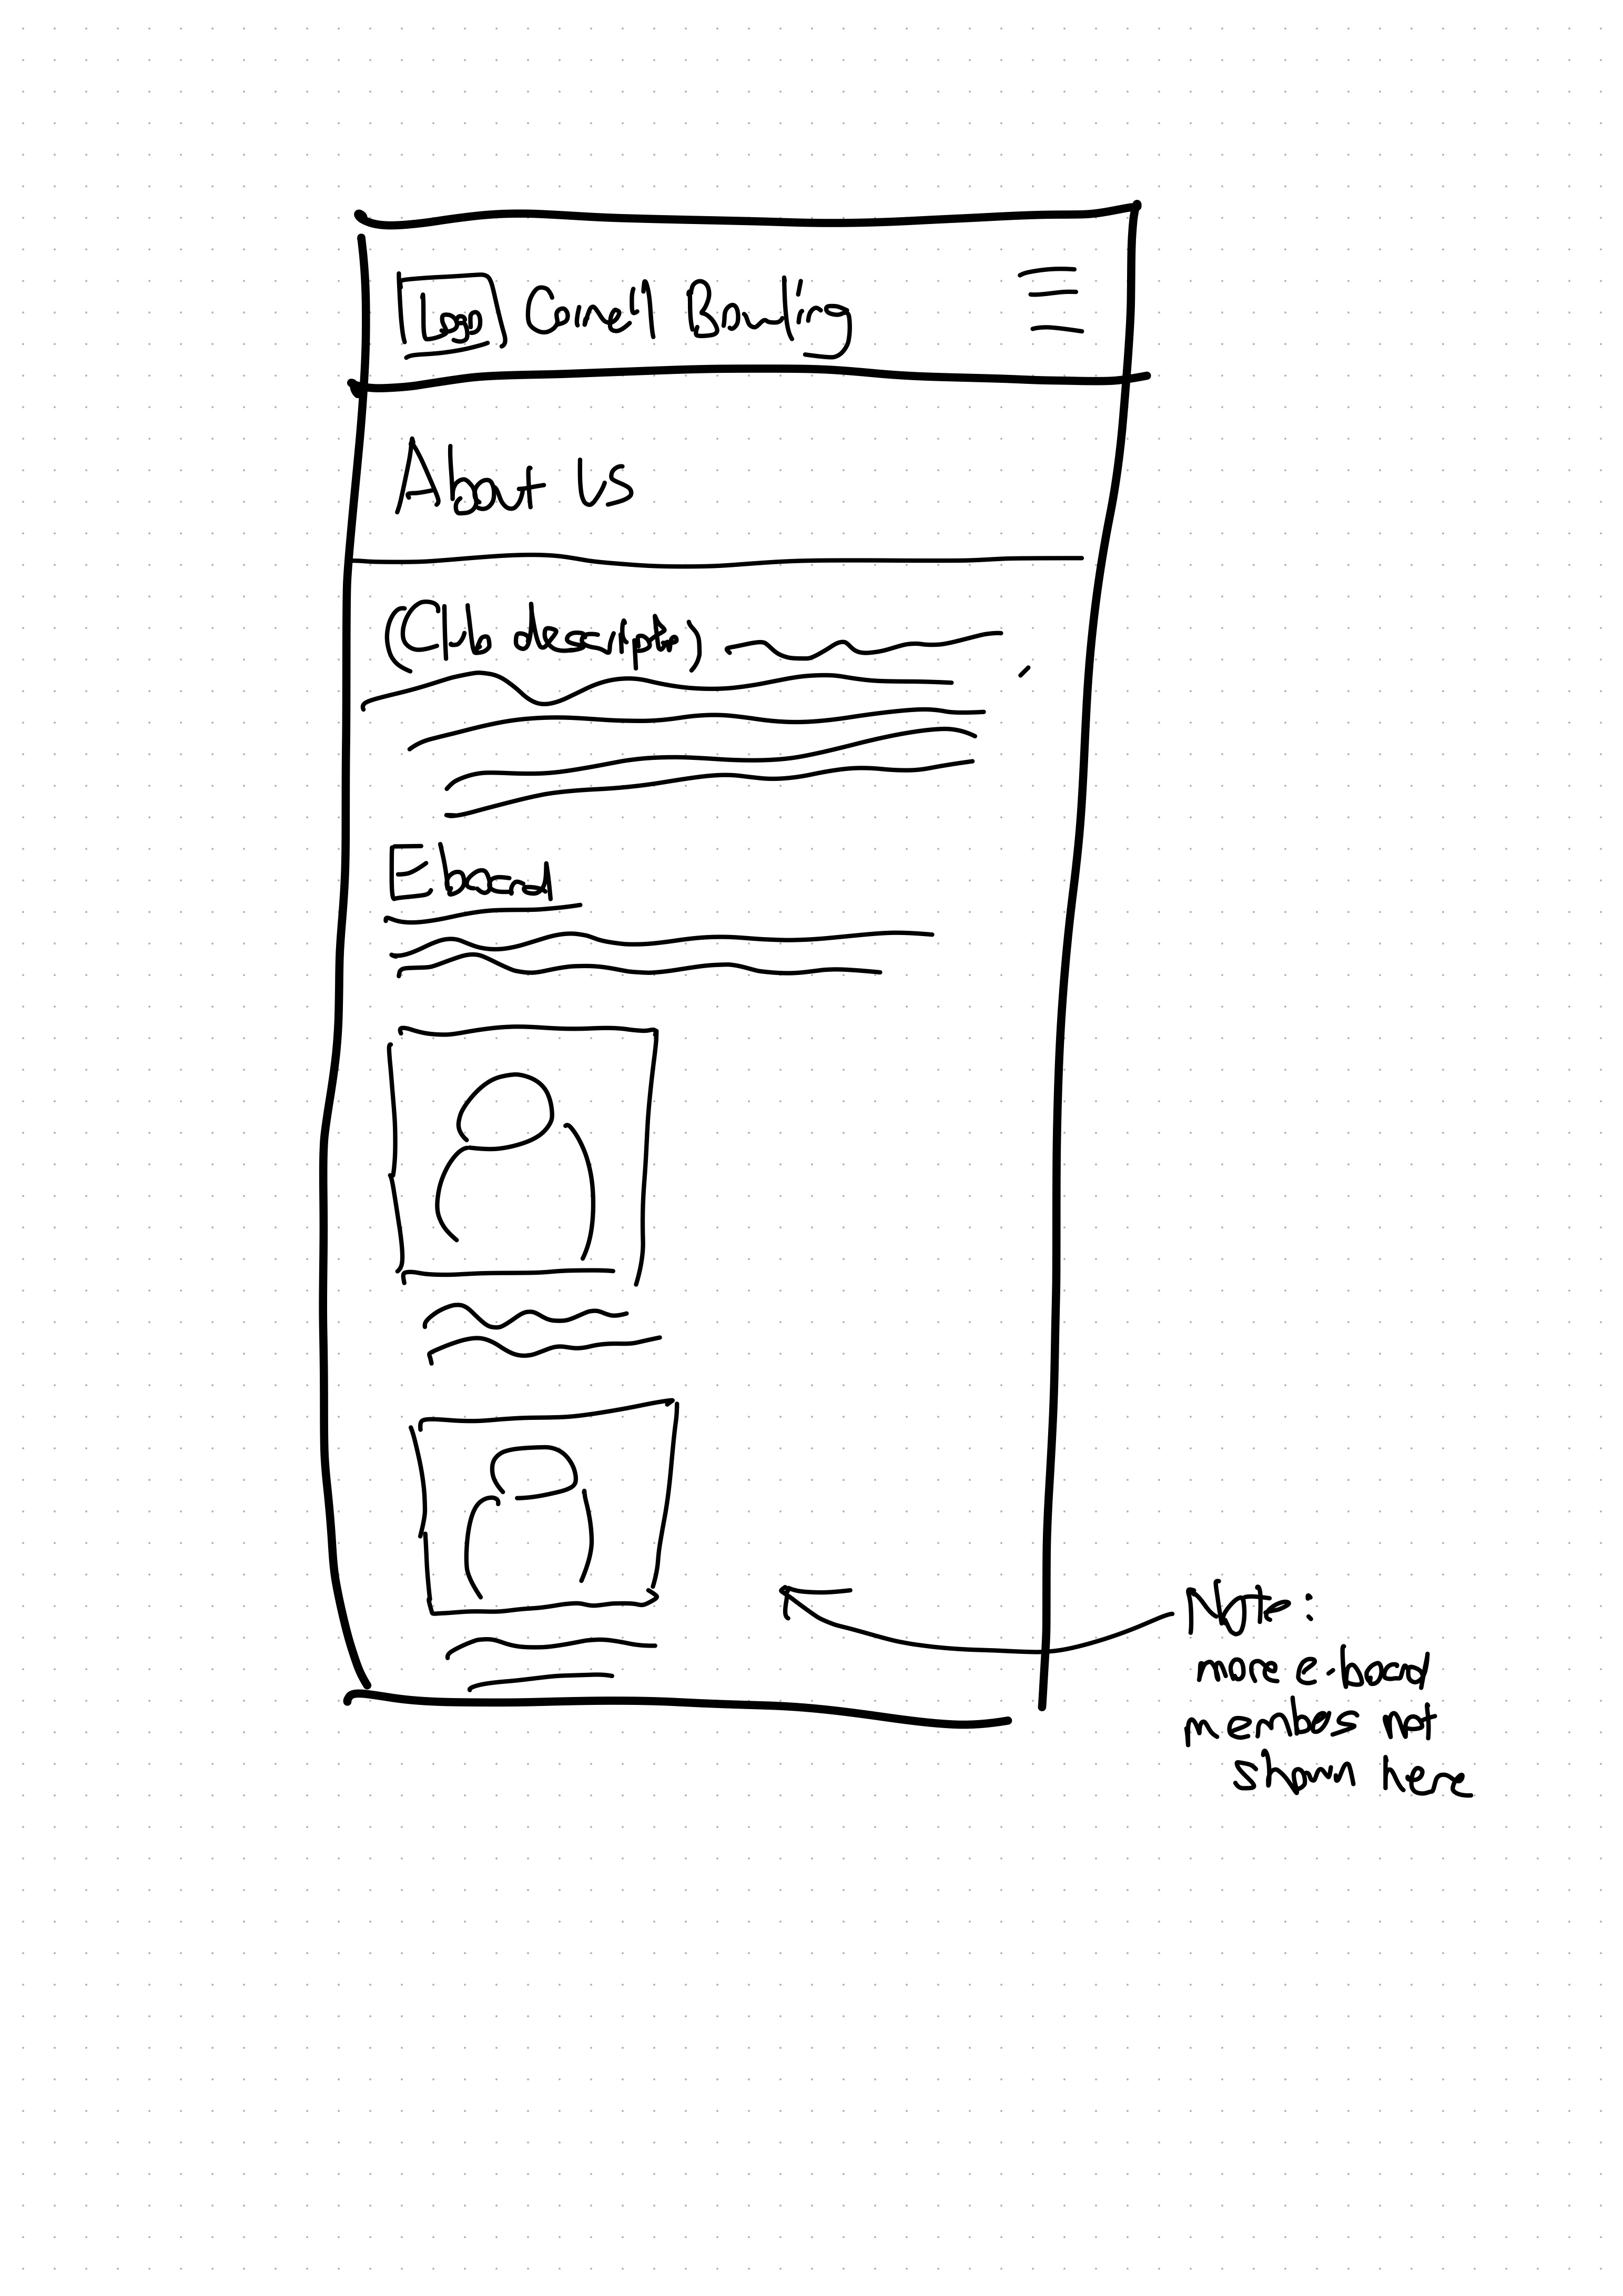 Logo Cornell Bowling
About Us
(Club descript)
Eboard
Note:
more e-board
members not
shown here